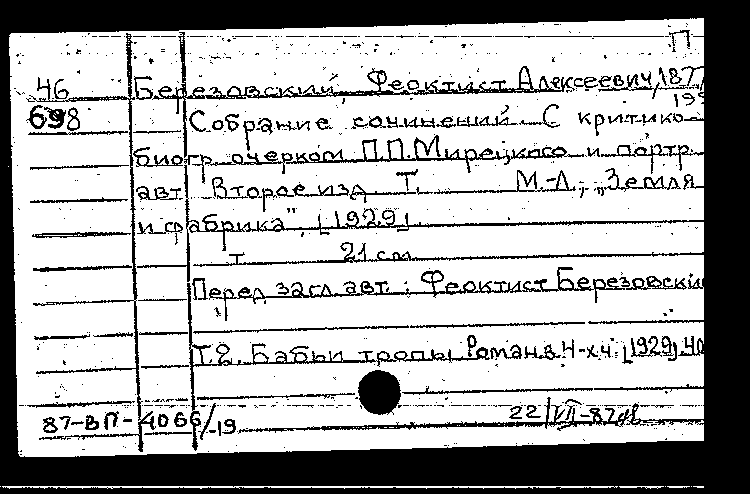 П
46 Березовский, Феоктист Алексеевич, 1877
698 Собрание сочинений. С критико-
биогр. очерком П.П.Мирецкого и портр.
авт. Второе изд. Т. М.-Л., „Земля
и фабрика", [1929]
т. 21 см.
Перед загл. авт.: Феоктист Березовский
Т.2. Бабьи тропы. Роман в 4-х ч. [1929]. 40
87-ВП-4066/-19 22/VII-87